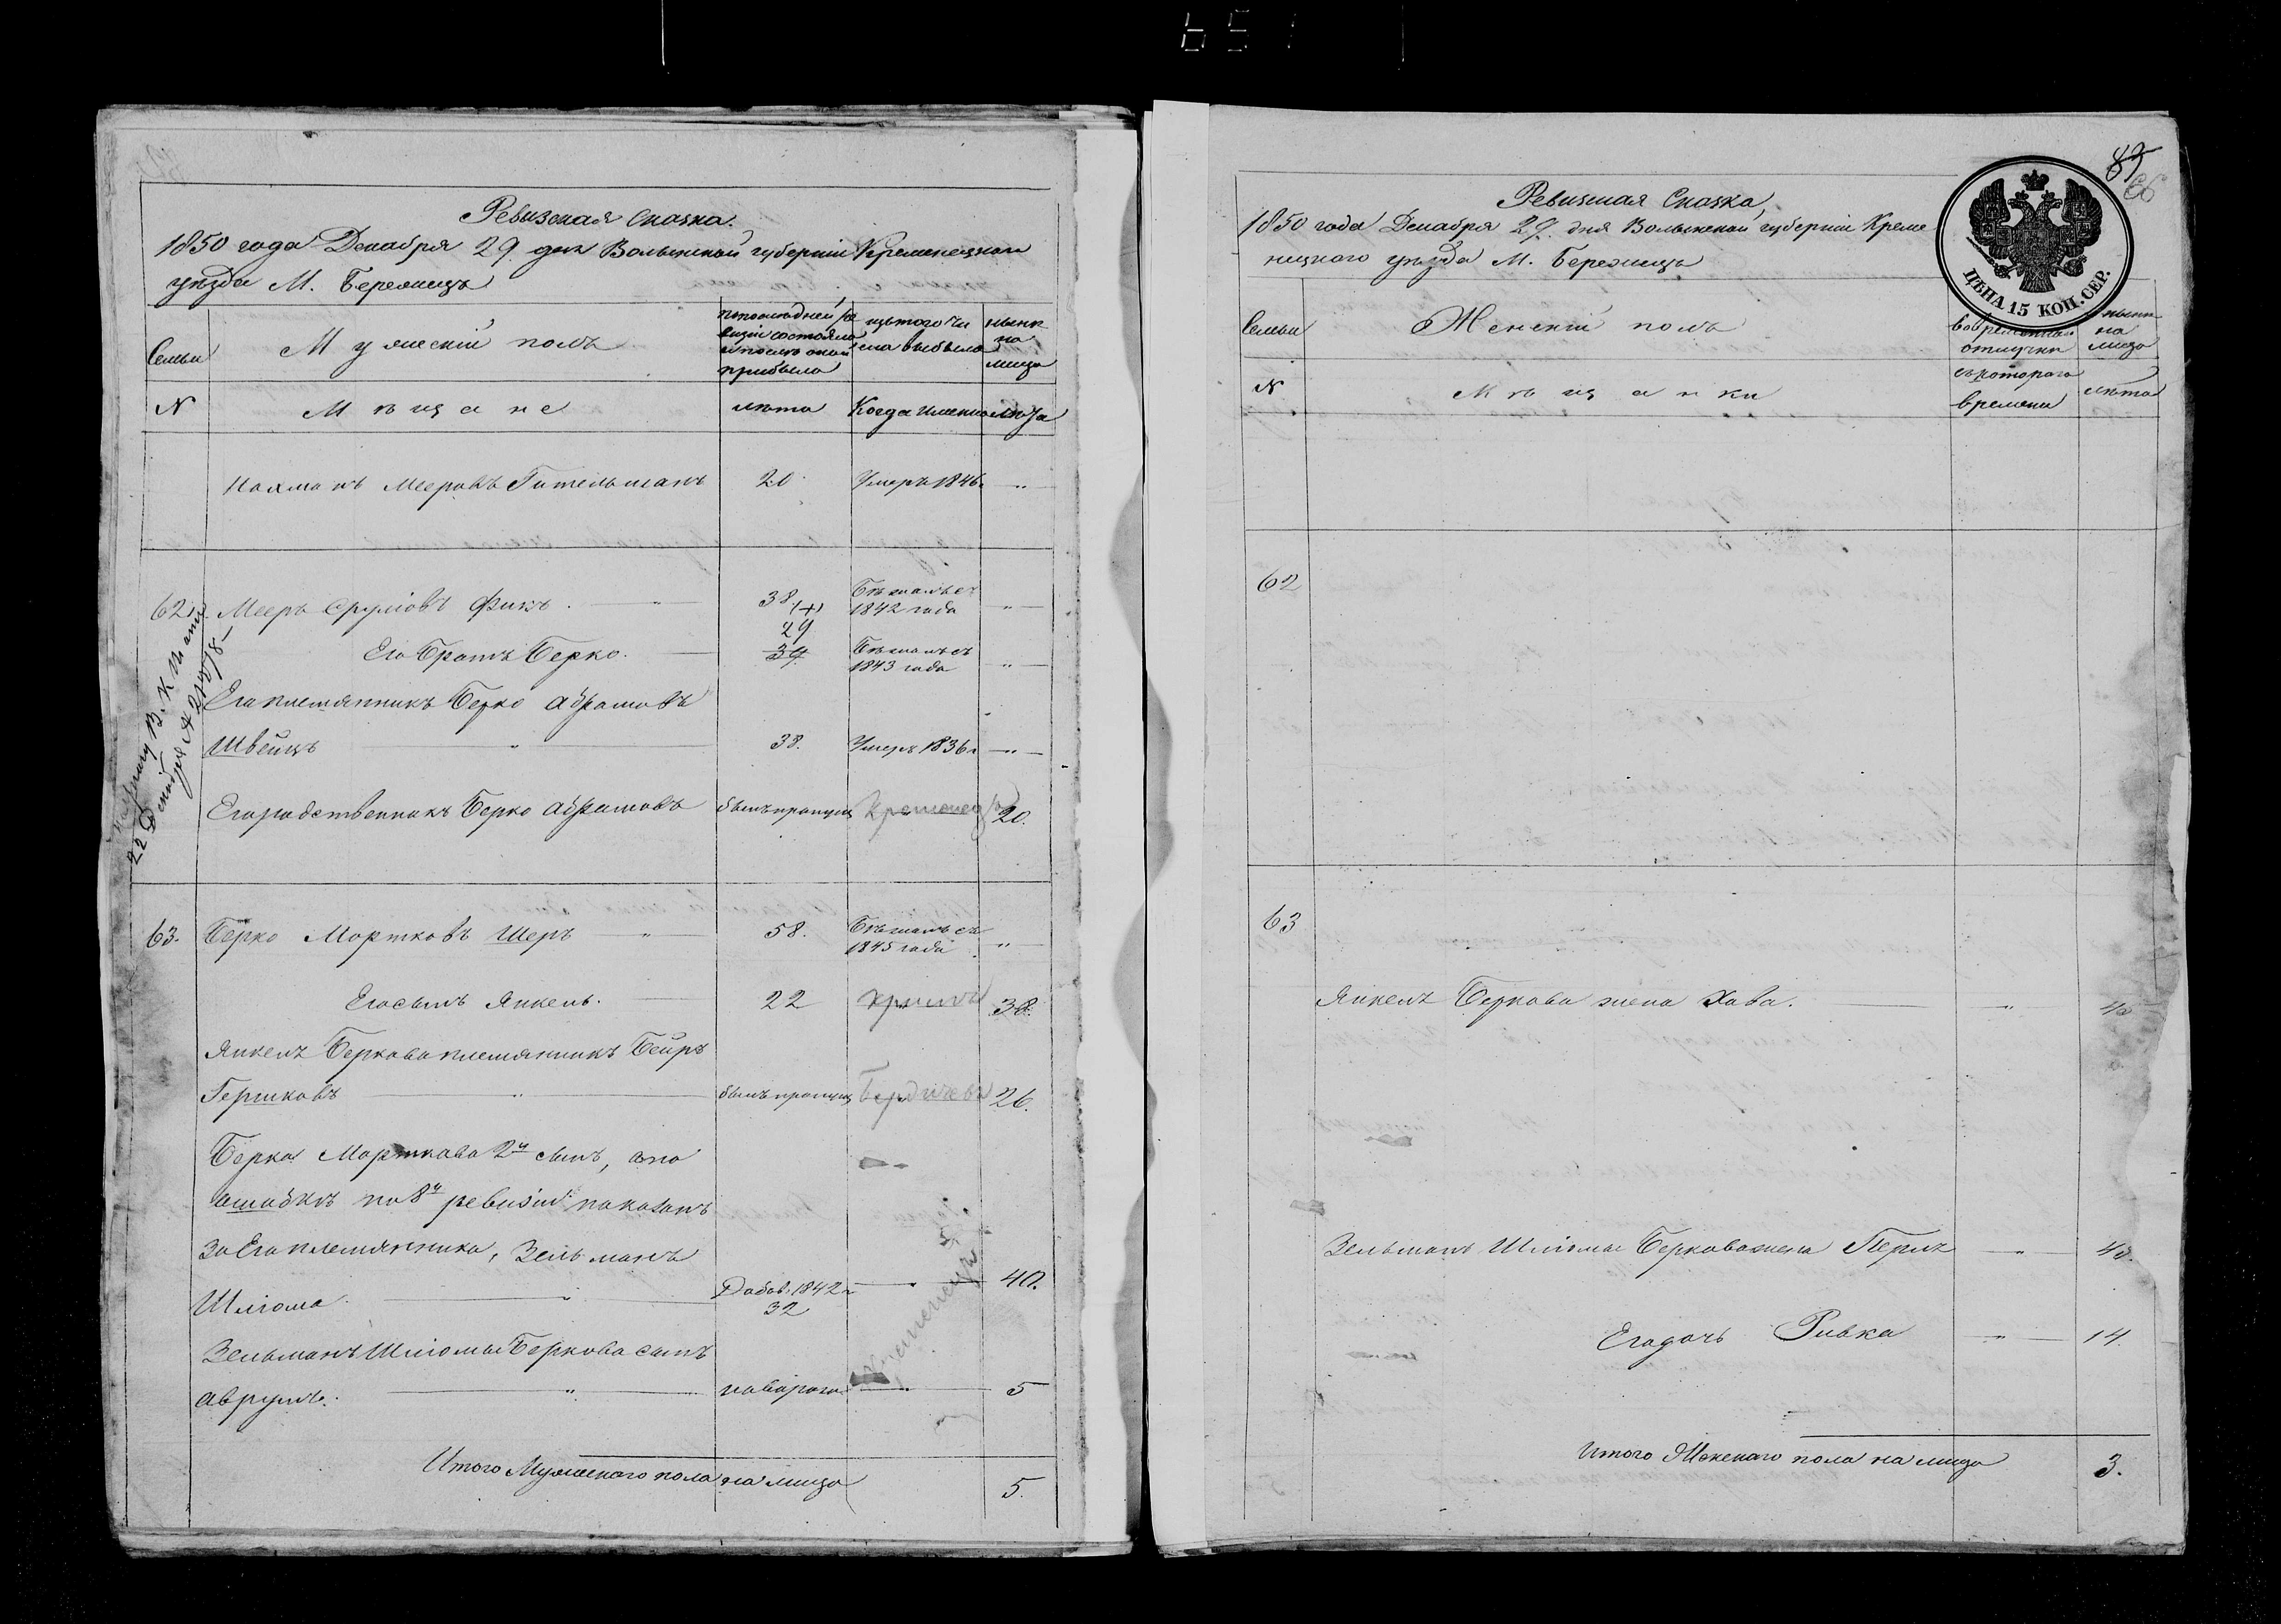 Ревизская Сказка.
1850 года Декабря 29 дня Волынской губернии Кременецкого
уезда М. Бережецъ
Семьи
Мужеский полъ
по последней ре
визии состояло
и после оной
прибыло
изъ того чи
сла выбыло
ныне
на
лицо
N
Мещане
лета
Когда именно
лета
Нахманъ Мееровъ Гительманъ 20 Умеръ 1846 "
62 Мееръ Сруліовъ Фикъ. " 38 Бежалъ съ
1842 года "
29
Его Братъ Берко. 34 Бежалъ съ
1843 года "
Его племянникъ Берко Абрамовъ
Швейцъ " 38. Умеръ 1836 "
Его родственникъ Берко Абрамовъ былъ пропущ Кременецъ 20.
22 Декабря
63. Берко Мортковъ Шеръ " 58. Бежалъ съ
1845 года "
Его сынъ Янкель. 22 38.
Янкеля Беркова племянникъ Бейръ
Гершковъ " былъ пропущ Бердичевъ 26.
Берка Морткова 2й сынъ, а по
ошибкѣ по 8й ревизіи показанъ
за Его племянника, Зельманъ
Шліома. " Добав. 1842 " 40.
32
Зельманъ Шліомы Беркова сынъ
Аврумъ. " новорож " 5
Кременецъ
Итого Мужескаго пола на лицо 5.
83
66
Ревизская Сказка
1850 года Декабря 29. дня Волынской губерніи Креме
нецкого уезда М. Бережецъ
ЦѢНА 15 КОП. СЕР.
Семьи
Женскій полъ
во временной
отлучке
ныне
на
лицо
N
Мещанки
съ которого
времени
лета
62
63
Янкеля Беркова жена Хава. " 40
Зельмана Шліомы Беркова жена Перля " 40.
Его дочь Ривка " 14.
Итого Женскаго пола на лицо 3.